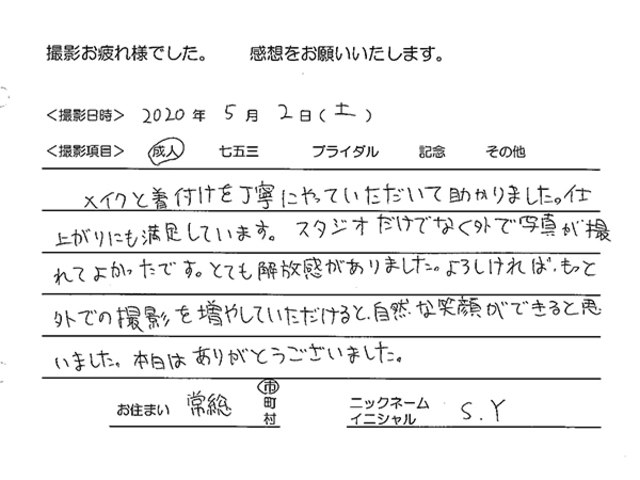 撮影お疲れ様でした。 感想をお願いいたします。
＜撮影日時＞ 2020年 5月 2日(土)
＜撮影項目＞ 成人 七五三 ブライダル 記念 その他
メイクと着付けを丁寧にやっていただいて助かりました。仕
上がりにも満足しています。スタジオだけでなく外で写真が撮
れてよかったです。とても解放感がありました。よろしければ、もっと
外での撮影を増やしていただけると、自然な笑顔ができると思
いました。本日はありがとうございました。
お住まい 常総 市
町
村
ニックネーム
イニシャル S.Y